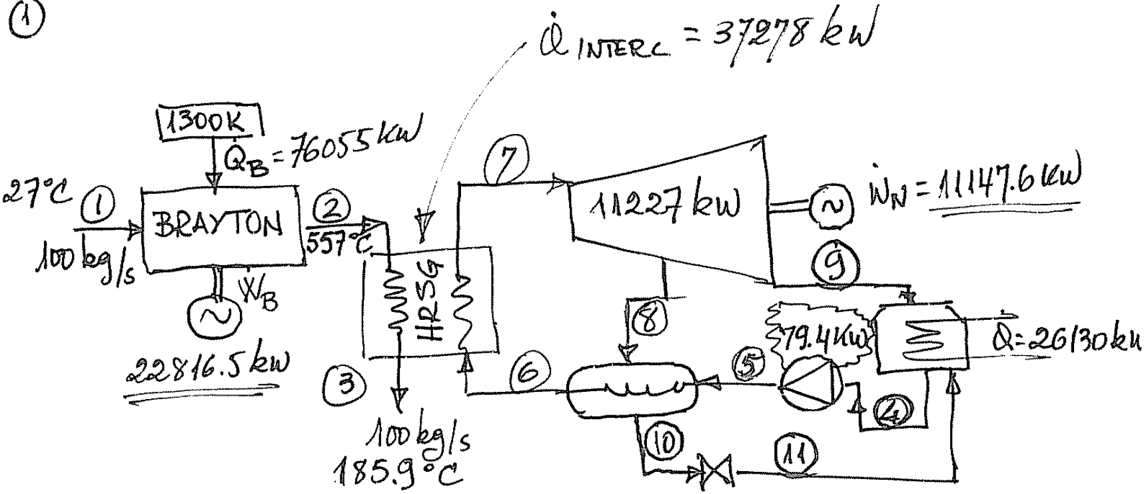 ①
Q̇ INTERC = 37278 kW
1300K
Q̇B = 76055 kW
27°C
①
100 kg/s
BRAYTON
②
557°C
ẆB
22816.5 kW
HRSG
③
100 kg/s
185.9°C
⑦
11227 kW
ẆN = 11147.6 kW
⑨
⑧
79.4 KW
Q̇ = 26130 kW
⑥
⑤
④
⑩
⑪